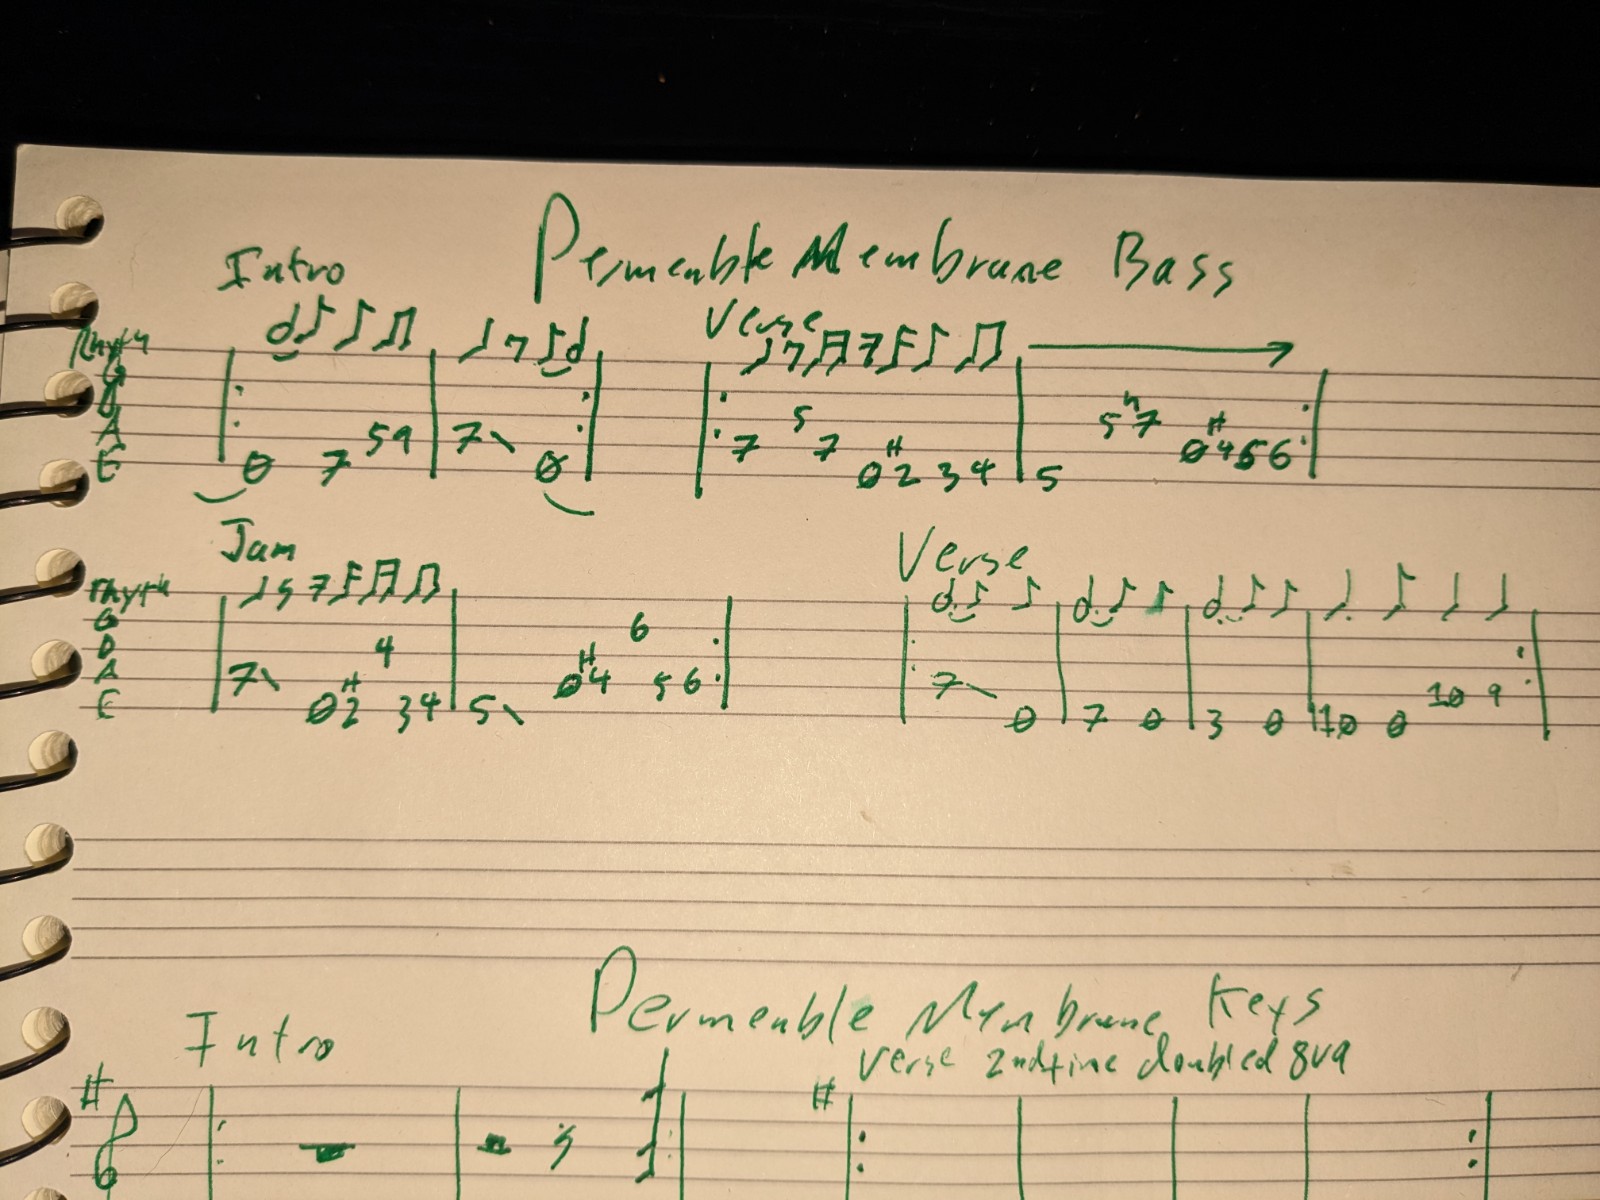 Permeable Membrane Bass
Intro
Verse
Rhyth
G
D
A
E
0 7 5 9 7 0
7 5 7 0 H 2 3 4 5 5 H 7 0 H 4 5 6
Jam
Verse
Rhyth
G
D
A
E
7 0 H 2 4 3 4 5 0 H 4 6 5 6
7 0 7 0 3 0 10 0 10 9
Permeable Membrane Keys
Intro
Verse 2nd time doubled 8va